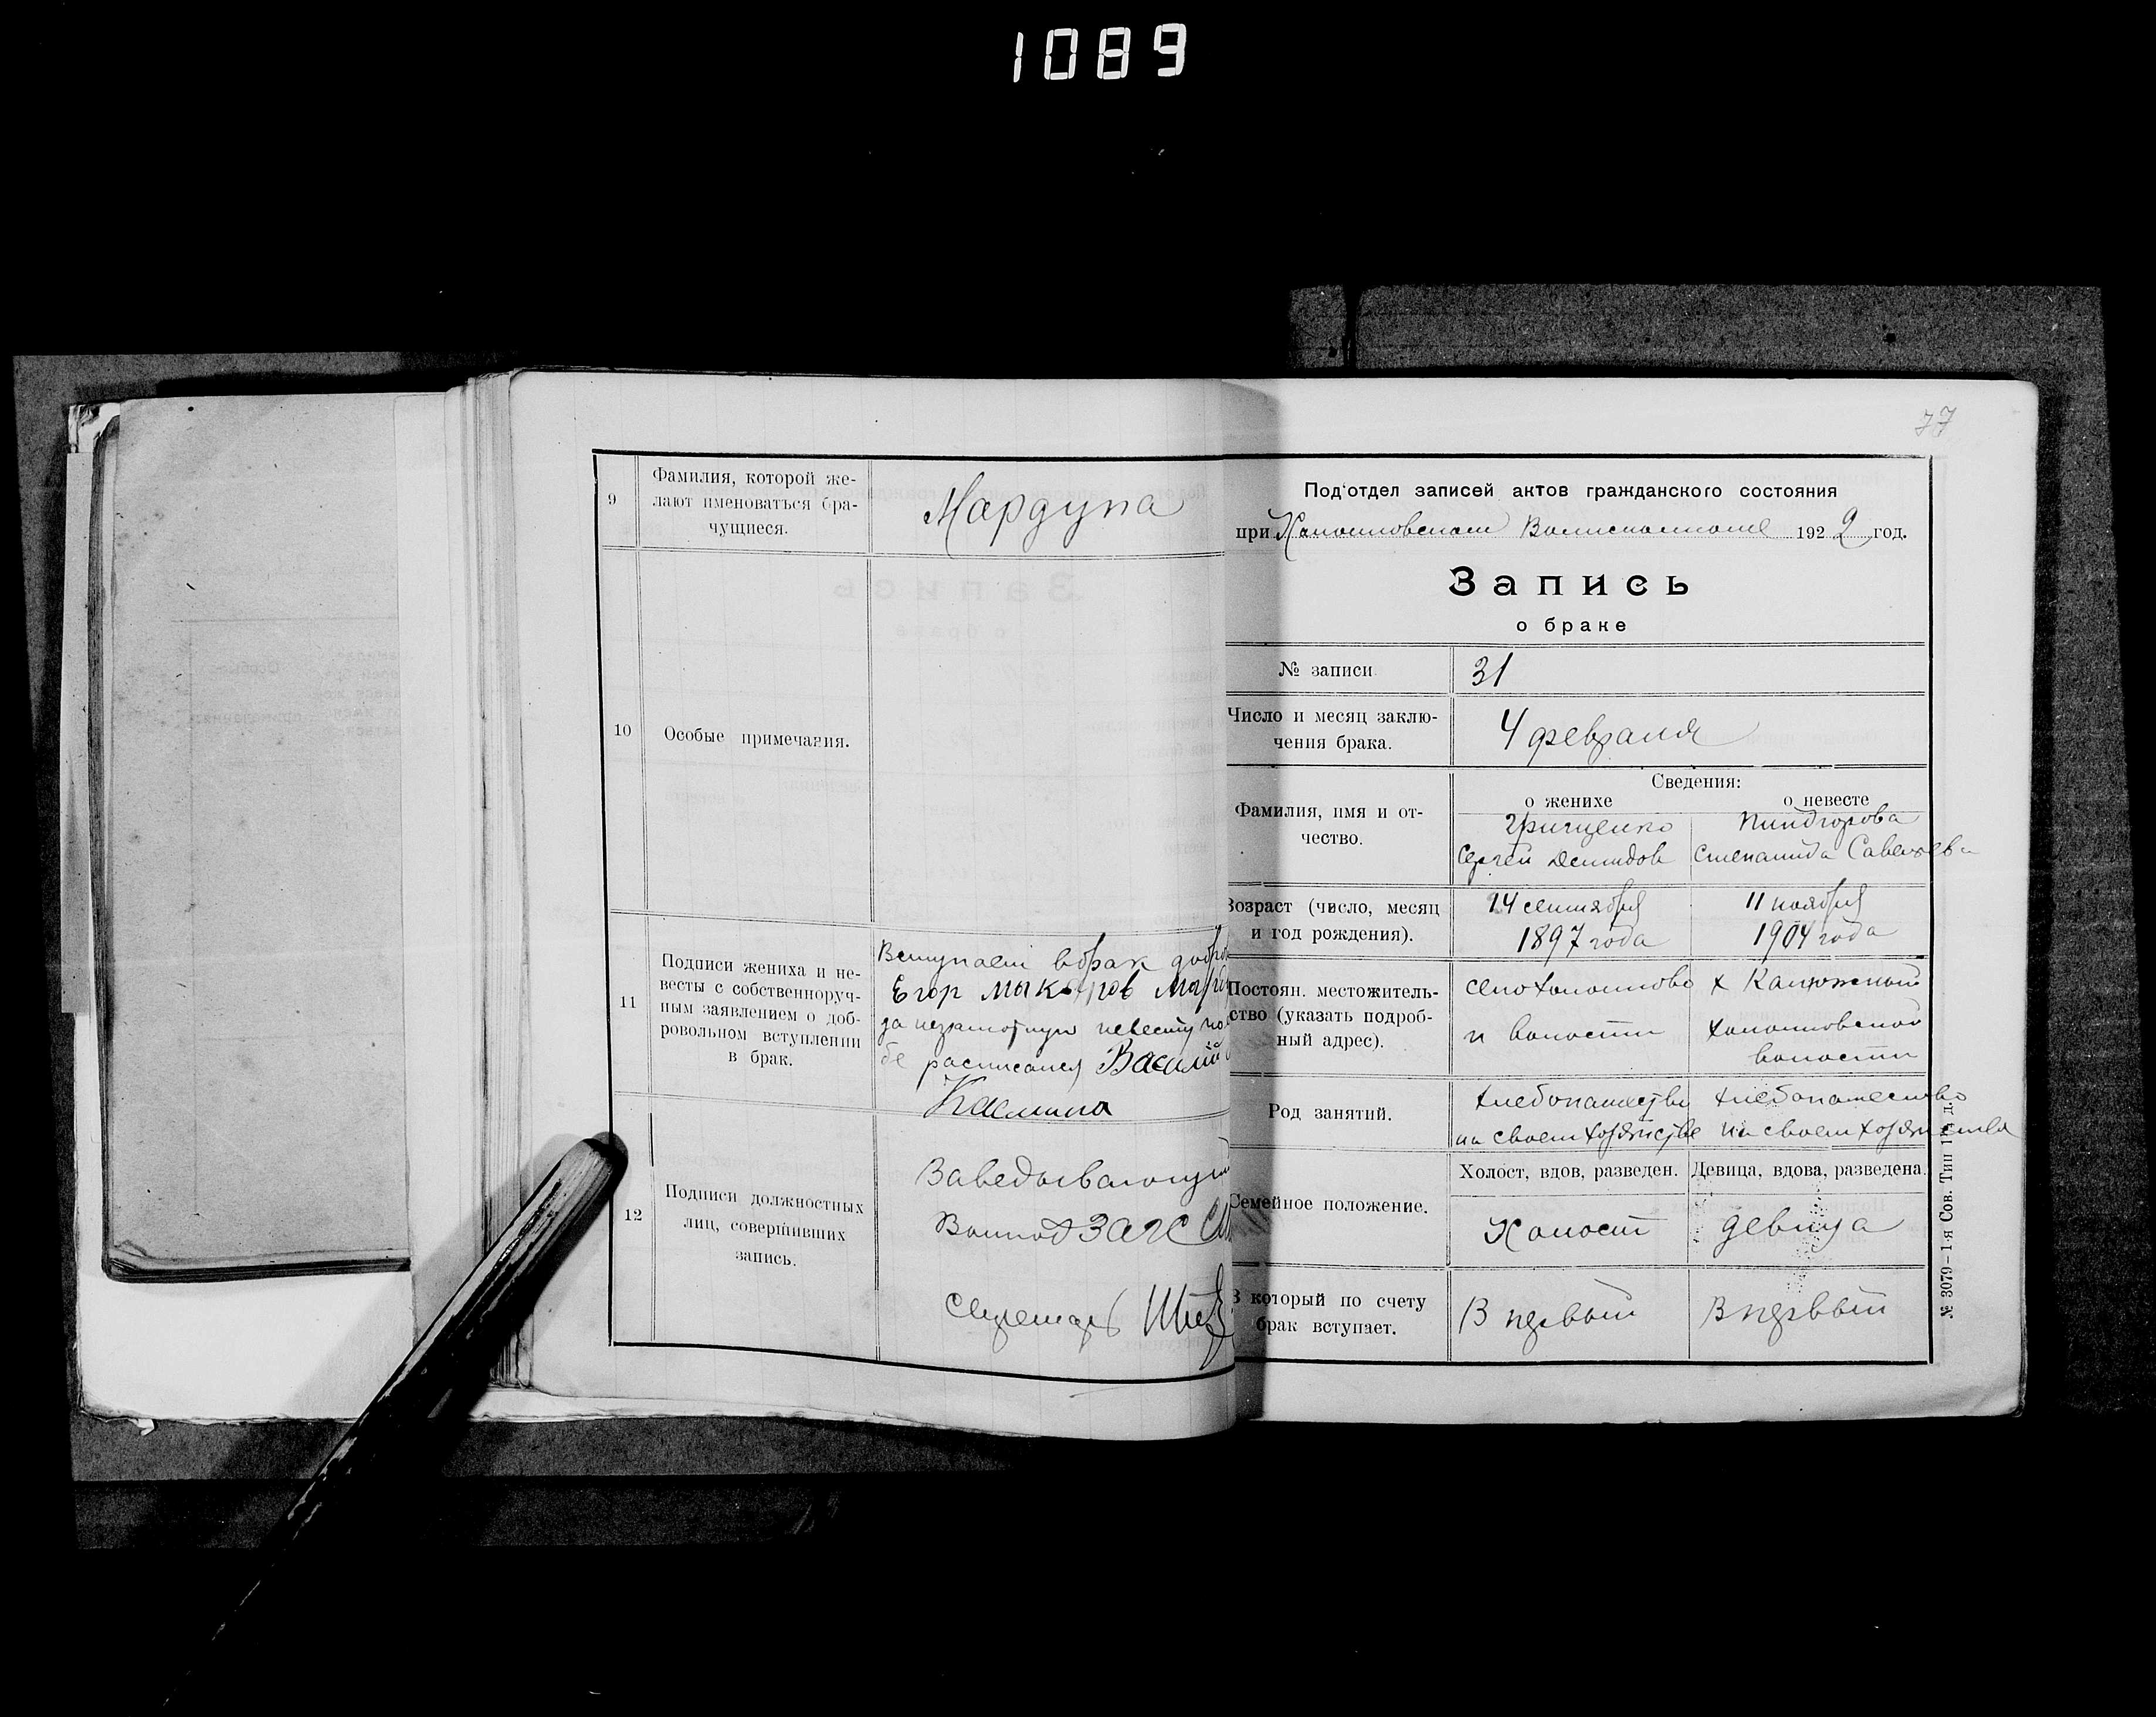 1089
9
Фамилия, которой же-
лают именоваться бра-
чущиеся.
Мардупа
10
Особые примечания.
11
Подписи жениха и не-
весты с собственноруч-
ным заявлением о доб-
ровольном вступлении
в брак.
Вступаем в брак добро
Егор Макаров
за неграмотную невесту
расписался Василий
12
Подписи должностных
лиц, совершивших
запись.
Заведывающий
ЗАГС
Секретарь
77
Под'отдел записей актов гражданского состояния
при 1922 год.
Запись
о браке
№ записи
31
Число и месяц заклю-
чения брака.
4 февраля
Сведения:
о женихе
о невесте
Фамилия, имя и от-
чество.
Грищенко
Сергей Демидов
Степанида
Возраст (число, месяц
и год рождения).
14 сентября
1897 года
11 ноября
1904 года
Постоян. местожитель-
ство (указать подроб-
ный адрес).
село
и волости
х
волости
Род занятий.
хлебопашество
на своем хозяйстве
хлебопашество
на своем хозяйстве
Семейное положение.
Холост, вдов, разведен.
Девица, вдова, разведена.
Холост
девица
В который по счету
брак вступает.
В первый
В первый
№ 3079–1-я Сов. Тип